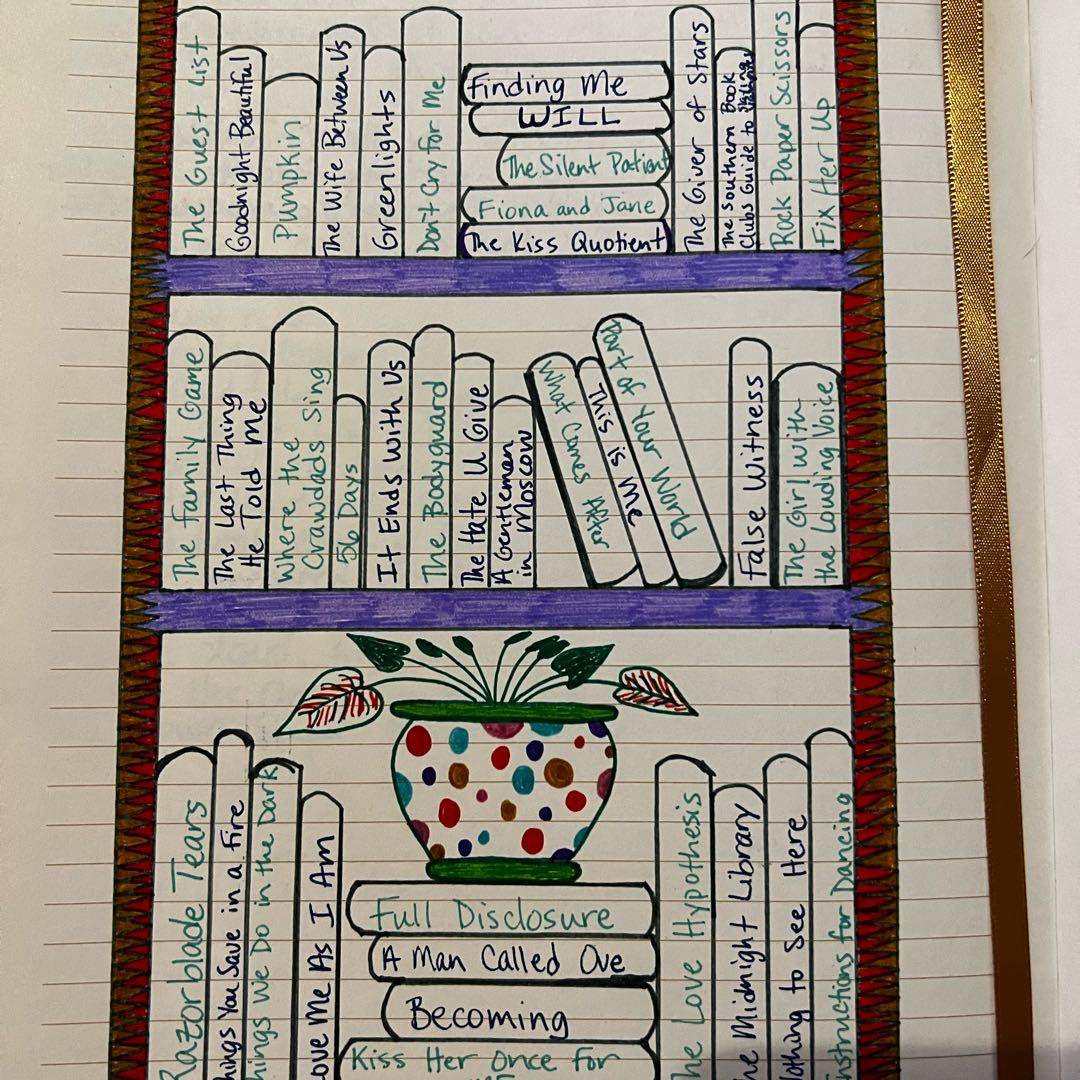 The Guest List
Goodnight Beautiful
Pumpkin
The Wife Between Us
Greenlights
Don't Cry for Me
Finding Me
WILL
The Silent Patient
Fiona and Jane
The Kiss Quotient
The Giver of Stars
The Southern Book
Clubs Guide to
Rock Paper Scissors
Fix Her Up
The Family Game
The Last Thing
He Told Me
Where the
Crawdads Sing
56 Days
It Ends With Us
The Bodyguard
The Hate U Give
A Gentleman
in Moscow
After
This is Me
World
False Witness
The Girl with
the Louding Voice
Razorblade Tears
hings You Save in a Fire
hings We Do in the Dark
Love Me As I Am
Full Disclosure
A Man Called Ove
Becoming
Kiss Her Once for
he Love Hypothesis
he Midnight Library
Nothing to See Here
nstructions for Dancing